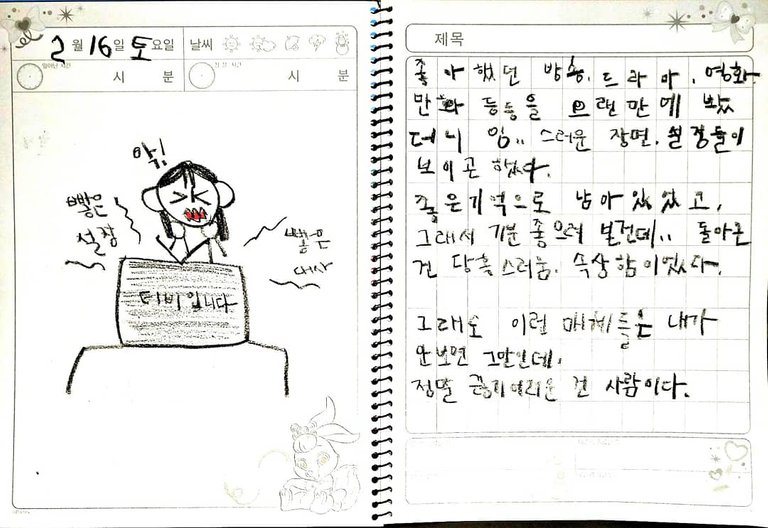 2월 16일 토요일 날씨
일어난 시간 시 분
잠 잔 시간 시 분
악!
빻은
설정
빻은
대사
티비입니다
제목
좋아했던 방송, 드라마, 영화
만화 등등을 오랜만에 봤
더니 읭.. 스러운 장면, 설정들이
보이곤 했다.
좋은기억으로 남아있었고,
그래서 기분 좋으려 본건데.. 돌아온
건 당혹스러움, 속상함이었다.
그래도 이런 매체들은 내가
안보면 그만인데,
정말 끊기어려운 건 사람이다.